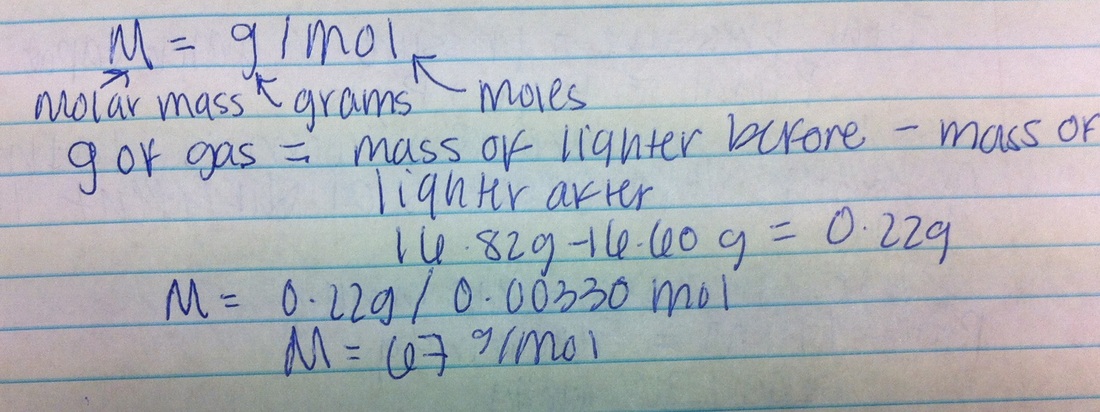 M = g/mol
molar mass grams moles
g of gas = mass of lighter before - mass of
lighter after
16.82g-16.60 g = 0.22g
M = 0.22g/0.00330 mol
M = 67 g/mol